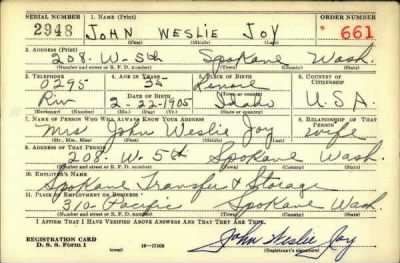 SERIAL NUMBER 1. NAME (Print) ORDER NUMBER
2948 JOHN WESLIE JOY 661
(First) (Middle) (Last)
2. ADDRESS (Print)
208 W-5th Spokane Wash.
(Number and street or R. F. D. number) (Town) (County) (State)
3. TELEPHONE 4. AGE IN YEARS 5. PLACE OF BIRTH 6. COUNTRY OF CITIZENSHIP
0295 35
Riv. DATE OF BIRTH
2-22-1905 Idaho U.S.A.
(Exchange) (Number) (Mo.) (Day) (Yr.) (Town) (State or county)
7. NAME OF PERSON WHO WILL ALWAYS KNOW YOUR ADDRESS 8. RELATIONSHIP OF THAT PERSON
Mrs John Weslie Joy wife
(Mr., Mrs., Miss) (First) (Middle) (Last)
9. ADDRESS OF THAT PERSON
208 W. 5th Spokane Wash.
(Number and street or R. F. D. number) (Town) (County) (State)
10. EMPLOYER'S NAME
Spokane Transfer & Storage
11. PLACE OF EMPLOYMENT OR BUSINESS
310- Pacific Spokane Wash.
(Number and street or R. F. D. number) (Town) (County) (State)
I AFFIRM THAT I HAVE VERIFIED ABOVE ANSWERS AND THAT THEY ARE TRUE.
REGISTRATION CARD
D. S. S. Form 1 (over) 16-17105 John Weslie Joy
(Registrant's signature)